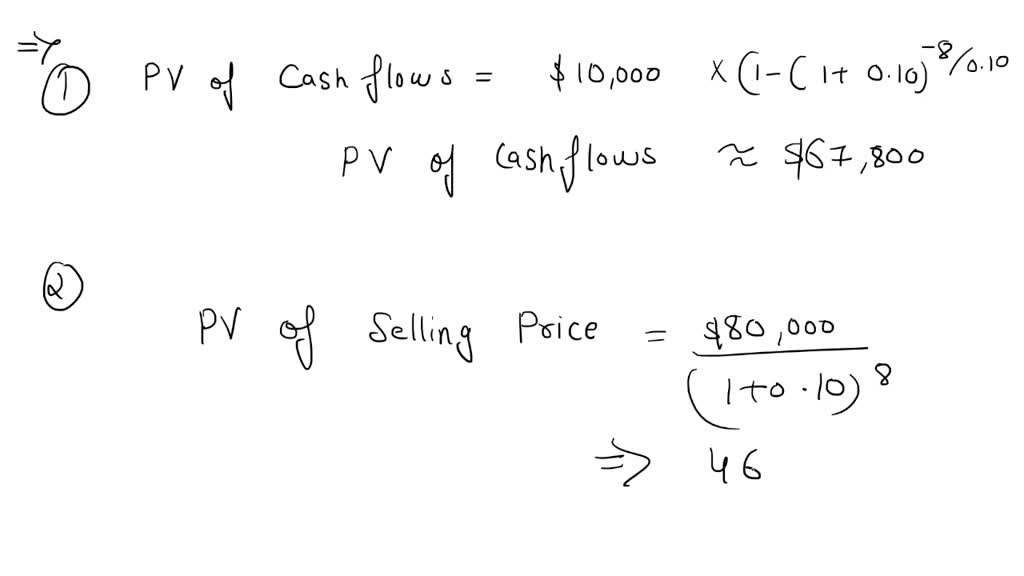 => ① PV of Cash flows = $10,000 × (1-(1+0.10)^-8/0.10
PV of Cash flows ≈ $67,800
② PV of Selling Price = $80,000
(1+0.10)^8
=> 46